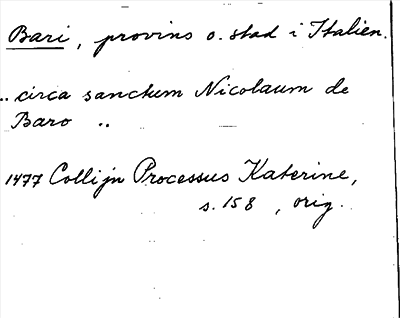 Bari, provins o. stad i Italien.
.. circa sanctum Nicolaum de
Baro ..
1477 Collijn Processus Katerine,
s. 158, orig.